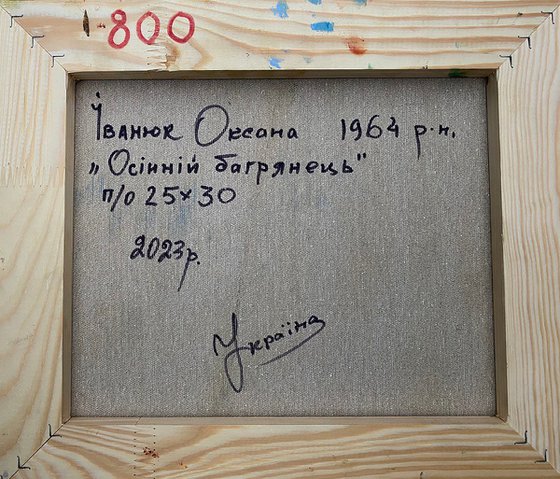 -800
Іванюк Оксана 1964 р.н.
„Осінній багрянець"
п/о 25×30
2023р.
Україна